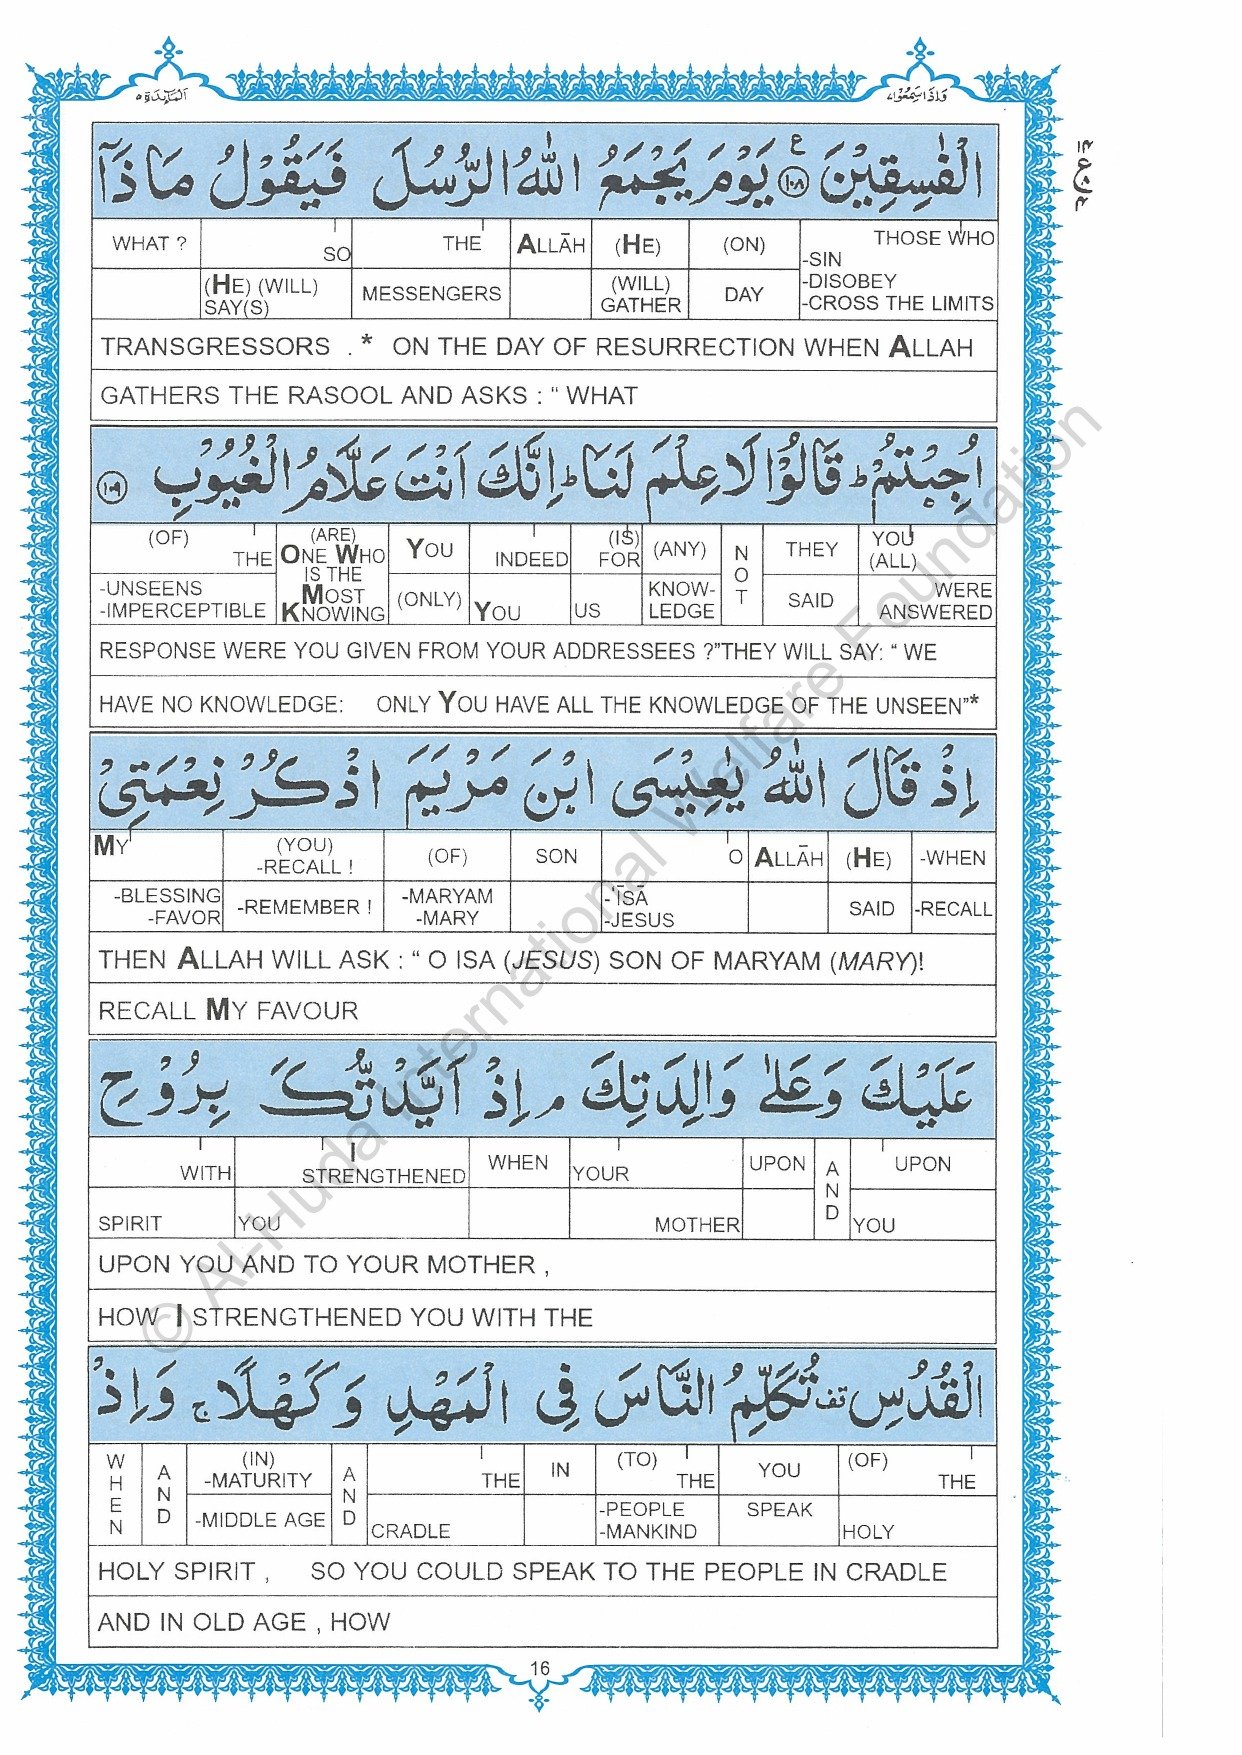 وَاِذَا سَمِعُوْا ٧
اَلْمَآئِدَة ٥
الْفٰسِقِيْنَ ﴿١٠٨﴾ ع يَوْمَ يَجْمَعُ اللّٰهُ الرُّسُلَ فَيَقُوْلُ مَاذَآ
WHAT ? SO THE ALLĀH (HE) (ON) THOSE WHO
-SIN
(HE) (WILL) SAY(S) MESSENGERS (WILL) GATHER DAY -DISOBEY
-CROSS THE LIMITS
TRANSGRESSORS . * ON THE DAY OF RESURRECTION WHEN ALLAH
GATHERS THE RASOOL AND ASKS : “ WHAT
اُجِبْتُمْ ؕ قَالُوْا لَا عِلْمَ لَنَا ؕ اِنَّكَ اَنْتَ عَلَّامُ الْغُيُوْبِ ﴿١٠٩﴾
(OF) THE (ARE) ONE WHO IS THE MOST KNOWING YOU INDEED (IS) FOR (ANY) NOT THEY YOU (ALL)
-UNSEENS -IMPERCEPTIBLE (ONLY) YOU US KNOW-LEDGE SAID WERE ANSWERED
RESPONSE WERE YOU GIVEN FROM YOUR ADDRESSEES ?”THEY WILL SAY: “ WE
HAVE NO KNOWLEDGE: ONLY YOU HAVE ALL THE KNOWLEDGE OF THE UNSEEN”*
اِذْ قَالَ اللّٰهُ يٰعِيْسَى ابْنَ مَرْيَمَ اذْكُرْ نِعْمَتِيْ
MY (YOU) -RECALL ! (OF) SON O ALLĀH (HE) -WHEN
-BLESSING -FAVOR -REMEMBER ! -MARYAM -MARY -ʿĪSĀ -JESUS SAID -RECALL
THEN ALLAH WILL ASK : “ O ISA (JESUS) SON OF MARYAM (MARY)!
RECALL MY FAVOUR
عَلَيْكَ وَعَلٰى وَالِدَتِكَ ۘ اِذْ اَيَّدْتُّكَ بِرُوْحِ
WITH I STRENGTHENED WHEN YOUR UPON AND UPON
SPIRIT YOU MOTHER YOU
UPON YOU AND TO YOUR MOTHER ,
HOW I STRENGTHENED YOU WITH THE
الْقُدُسِ قف تُكَلِّمُ النَّاسَ فِي الْمَهْدِ وَكَهْلًا ۚ وَاِذْ
WHEN AND (IN) -MATURITY AND THE IN (TO) THE YOU (OF) THE
-MIDDLE AGE CRADLE -PEOPLE -MANKIND SPEAK HOLY
HOLY SPIRIT , SO YOU COULD SPEAK TO THE PEOPLE IN CRADLE
AND IN OLD AGE , HOW
16
© Al-Huda International Welfare Foundation